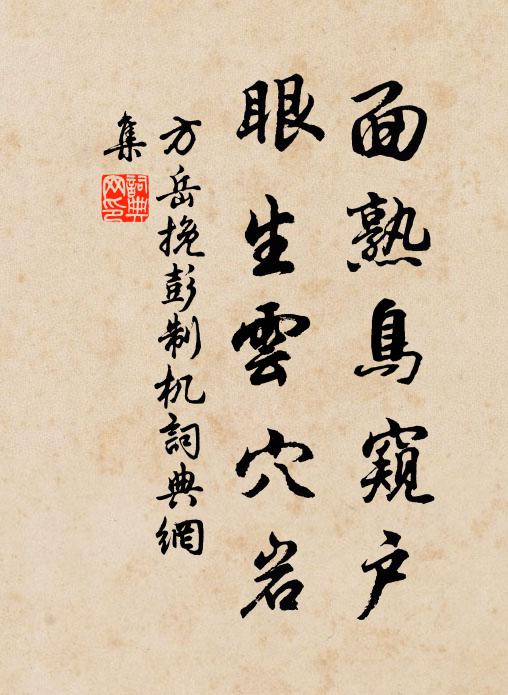 面熟鳥窺户
眼生雲穴岩
方岳挽彭制机詞典網
集
詞典
网印